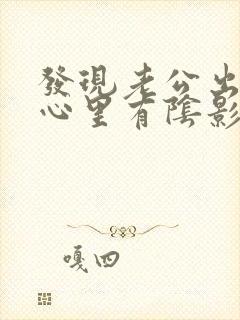 發現老公出
心里有陰影
嘎四